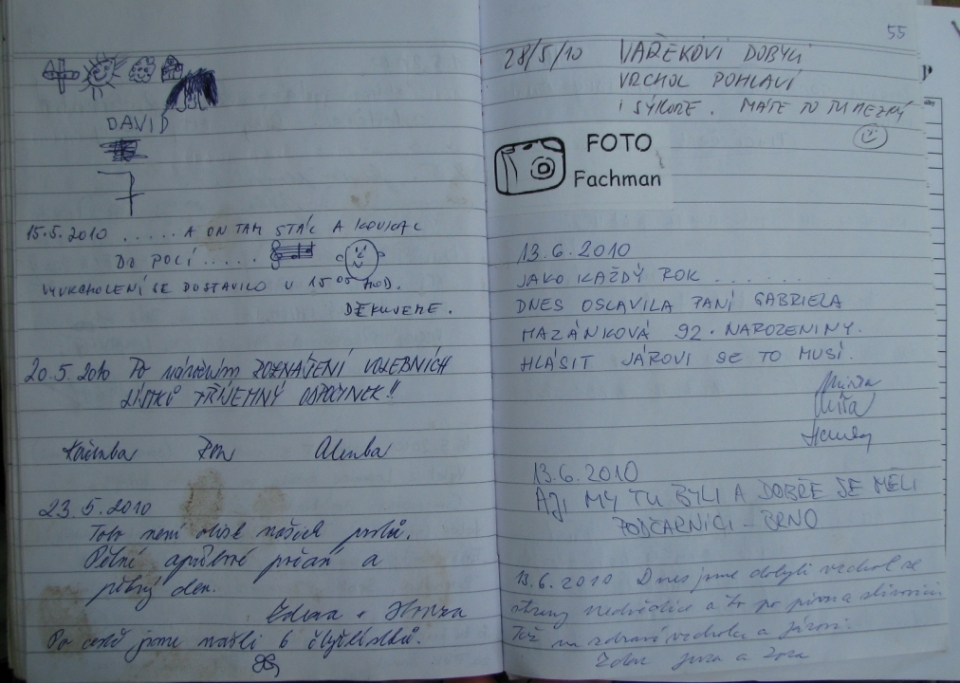 DAVID
7
15.5.2010 ..... A ON TAM STÁL A KOUKAL
DO POLÍ .....
VYVRCHOLENÍ SE DOSTAVILO V 15 05 HOD.
DĚKUJEME.
20.5.2010 Po náročném ROZNÁŠENÍ VOLEBNÍCH
LÍSTKŮ PŘÍJEMNÝ ODPOČINEK!!
Alenka
23.5.2010
Toto není otisk našich
Pěkné počasí a
pěkný den.
Po cestě jsme našli 6
55
28/5/10 VAŘEKOVI DOBYLI
VRCHOL POHLAVÍ
I SÝKOŘE. MÁTE TO TU HEZKÝ
FOTO
Fachman
13.6.2010
JAKO KAŽDÝ ROK ........
DNES OSLAVILA PANÍ GABRIELA
MAZÁNKOVÁ 92. NAROZENINY.
HLÁSIT JÁROVI SE TO MUSÍ.
Míša
13.6.2010
AJI MY TU BYLI A DOBŘE SE MĚLI
BRNO
13.6.2010 Dnes jsme dobyli vrchol ze
strany Nedvědice a to po pivu a slivovici.
Tož na zdraví vrcholu a Járovi.